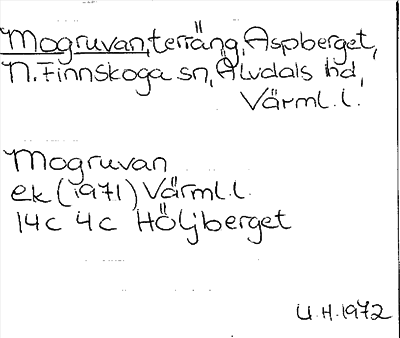 Mogruvan, terräng, Aspberget,
N. Finnskoga sn, Älvdals hd,
Värml. l.
Mogruvan
ek (1971) Värml. l.
14c 4c Höljberget
U.H. 1972